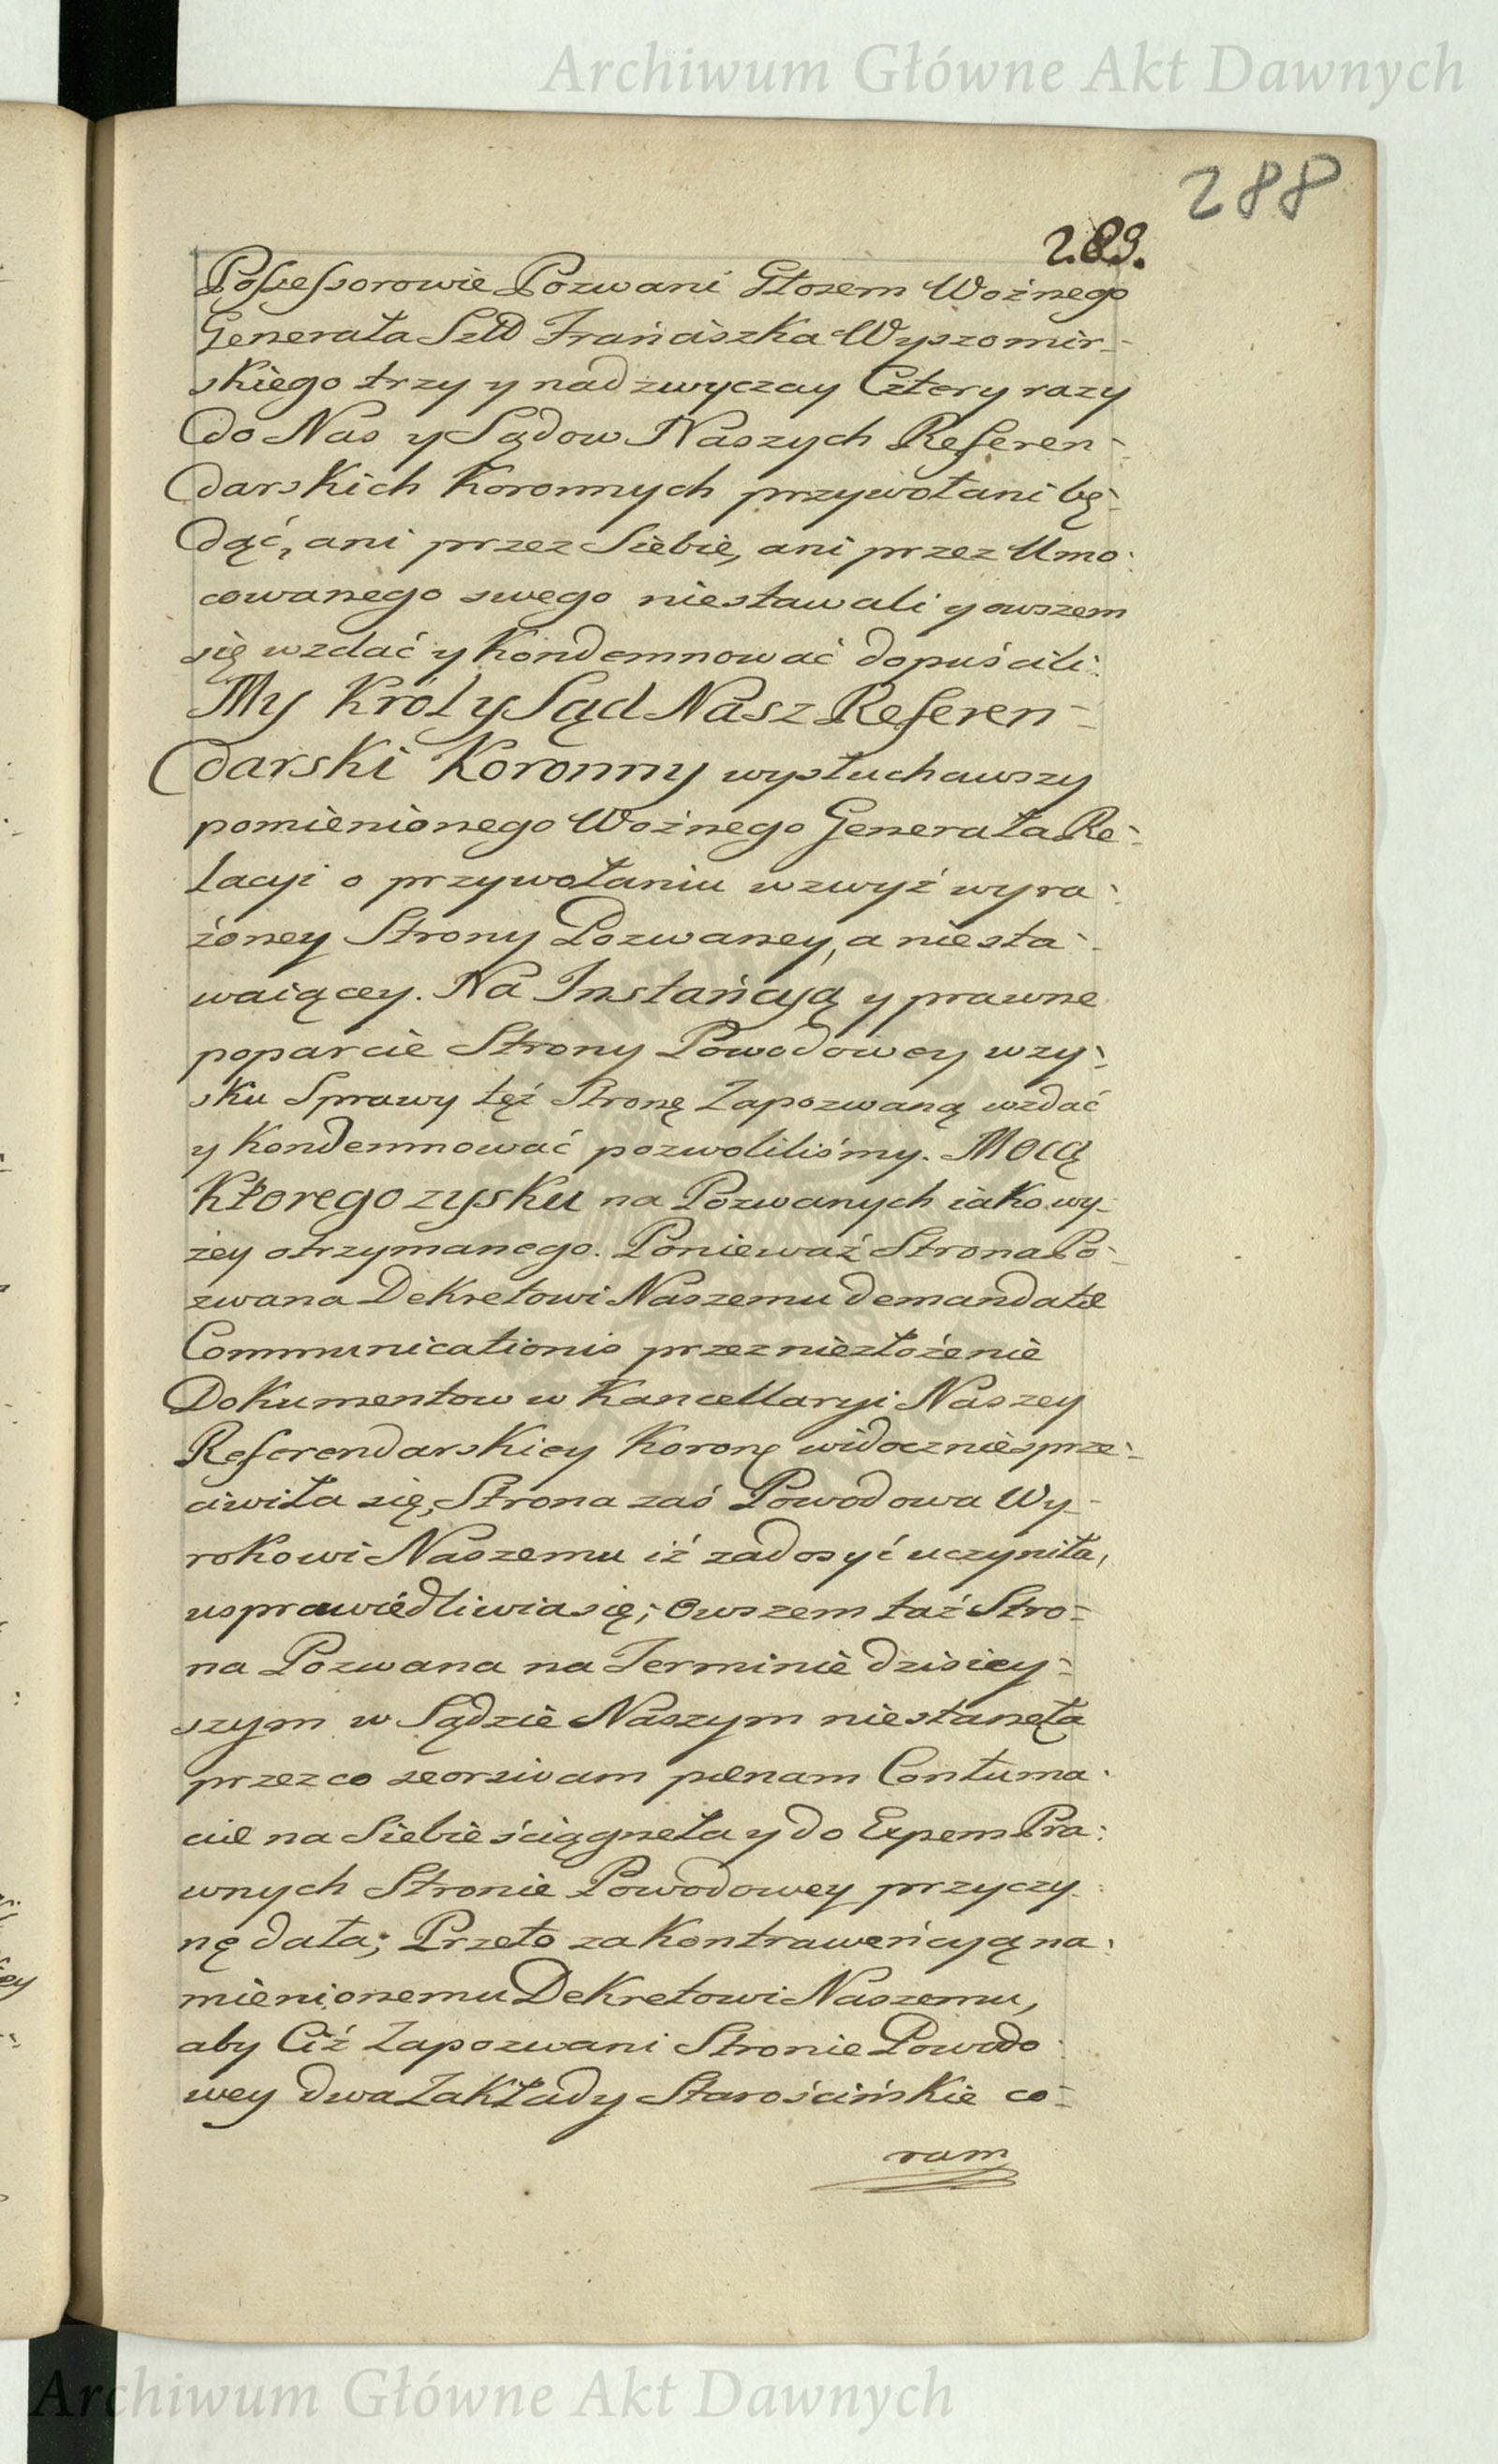 Archiwum Główne Akt Dawnych
288
289.
Possessorowie Pozwani Głosem Woźnego
Generała Franciszka Wyszomir-
skiego trzy y nad zwyczay Cztery razy
do Nas y Sądow Naszych Referen-
darskich Koronnych przywołani bę-
dąć, ani przez Siebie, ani przez Umo-
cowanego swego niestawali y owszem
się wzdać y Kondemnować dopuścili.
My Król y Sąd Nasz Referen-
darski Koronny wysłuchawszy
pomienionego Woźnego Generała Re-
lacyi o przywołaniu wzwyż wyra-
żoney Strony Pozwaney, a niesta-
waiącey. Na Instańcyją y prawne
poparcie Strony Powodowey wzy-
sku Sprawy tęż Stronę Zapozwaną wzdać
y Kondemnować pozwoliliśmy. Mocą
Którego zysku na Pozwanych iako wy-
żey otrzymanego. Ponieważ Strona Po-
zwana Dekretowi Naszemu demandatæ
Communicationis przez niezłożenie
Dokumentow w Kancellaryi Naszey
Referendarskiey Koronę widocznie sprze-
ciwiła się, Strona zaś Powodowa Wy-
rokowi Naszemu iż zadosyć uczyniła,
usprawiedliwia się; Owszem taż Stro-
na Pozwana na Terminie dzisiey-
szym w Sądzie Naszym niestanęła
przez co seorsivam pænam Contuma-
ciæ na Siebie ściągneła y do Expens Pra-
wnych Stronie Powodowey przyczy-
nę dała; Przeto za Kontraweńcyją na-
mienionemu Dekretowi Naszemu,
aby Ciż Zapozwani Stronie Powodo-
wey dwa Zakłady Starościńskie co-
ram
Archiwum Główne Akt Dawnych